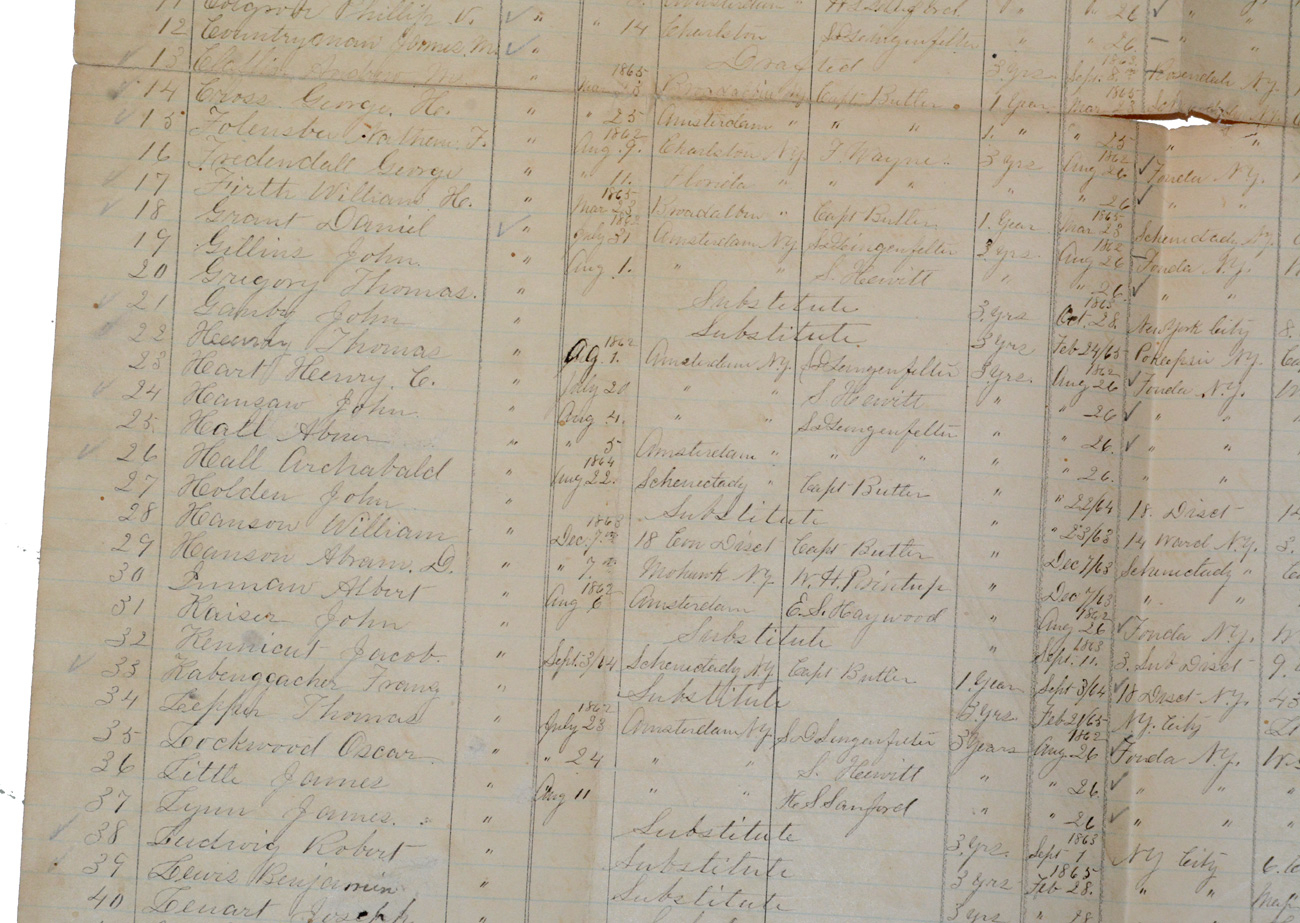 11 Colgrove Phillip V. " Amsterdam " " 26 " "
12 Countryman James M. " 14 Charlston SDLingenfelter " " 26. " "
13 Andrew " Drafted 3 yrs Sept. 8 1863 Rosendale N.Y.
14 Cross George H. " Mar 13 1865 Broadalbin Ny Capt Butler. 1 Year Mar 23 1865
15 Folensbee Nathan F. " " 25 Amsterdam " " " 1. " " 25 " "
16 Fredendall George " Aug 9. 1862 Charlston NY. F Wayne 3 yrs Aug 26 1862 Fonda NY.
17 Firth William H. " " 11. Florida " " " " " 26 " "
18 Grant Daniel " Mar 23 1865 Broadalbin " Capt Butler 1. Year Mar 23 1865 Schenectady NY.
19 Gillins John " July 31 1862 Amsterdam Ny. SDLingenfelter 3 yrs. Aug 26 1862 Fonda N.Y.
20 Grigory Thomas. " Aug 1. " " S. Hewitt " " 26 " "
21 Ganby John " Substitute 3 yrs Oct. 28 1863 New York City 8.
22 Henry Thomas " Substitute. 3 yrs Feb 24/65 Pokepsie NY.
23 Hart Henry. C. " Ag. 1. 1862 Amsterdam NY. SDLingenfelter 3 yrs. Aug 26 1862 Fonda N.Y.
24 Hansaw John " July 20 " " S. Hewitt " " 26 " "
25. Hall Abner " Aug 4. " " SDLingenfelter " " 26. " "
26 Hall Archabald " " 5 Amsterdam " " " " " 26. " "
27 Holden John " Aug 22. 1864 Schenectady " Capt Butler " " 22/64 18. Disct
28 Hanson William " Substitute " " 23/63 14 Ward N.Y. 3.
29 Hanson Abram. D. " Dec. 7th 1863 18 Con Disct Capt Butler " Dec 7/63 Schenectady "
30 Inman Albert " " 7th Mohawk NY. W.H.Printup " Dec 7/63 " "
31 Kaiser John " Aug 6 1862 Amsterdam E.S.Haywood " Aug 26 1862 Fonda NY.
32 Kennicut Jacob. " Substitute " Sept. 11. 1863 3. Sub Disct 9.
33 Habenggacher Frang " Sept. 3/64 Schenectady NY. Capt Butler 1. Year Sept 3/64 18 Disct N.Y. 43
34 Lepper Thomas " Substitute 3 yrs. Feb 21/65 NY. City
35 Lockwood Oscar. " July 23 1862 Amsterdam NY. S.D.Lingenfelter 3 years Aug 26 1862 Fonda NY.
36 Little James " " 24 " " S. Hewitt " " 26 " "
37 Lynn James. " Aug 11 " " H.S.Sanford " " 26 " "
38 Ludwig Robert " Substitute 3 yrs. Sept 1 1863 NY City
39 Lewis Benjamin " Substitute 3 yrs Feb 28. 1865 " "
40 Lenart Joseph " Substitute 3 yrs " 28